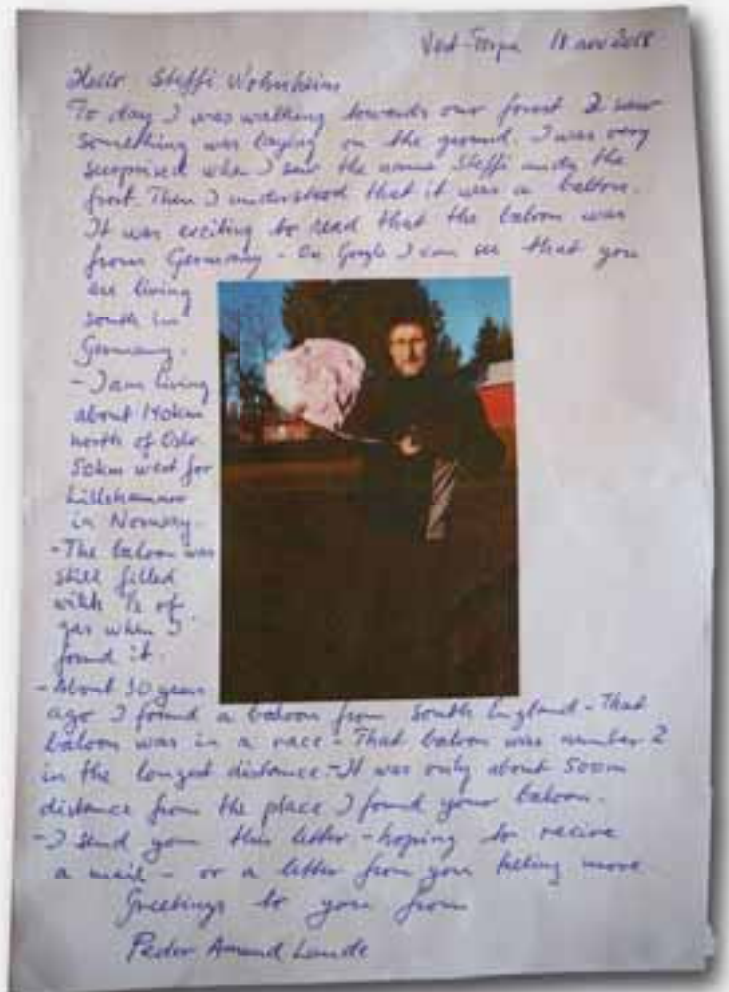 Vest-Torpa 18 nov 2018
Hello Steffi Wohnheim
To day I was walking towards our forest I saw
something was laying on the ground. I was very
surprised when I saw the name Steffi under the
frost. Then I understood that it was a baloon.
It was exciting to read that the baloon was
from Germany - On Google I can see that you
are living
south in
Germany.
- I am living
about 140km
north of Oslo
50km west for
Lillehammer
in Norway.
- The baloon was
still filled
with ½ of
gas when I
found it.
- About 30 years
ago I found a baloon from south England - That
baloon was in a race - That baloon was number 2
in the longest distance - It was only about 500m
distance from the place I found your baloon.
- I send you this letter - hoping to recive
a mail - or a letter from you telling more
Greetings to you from
Peder Amund